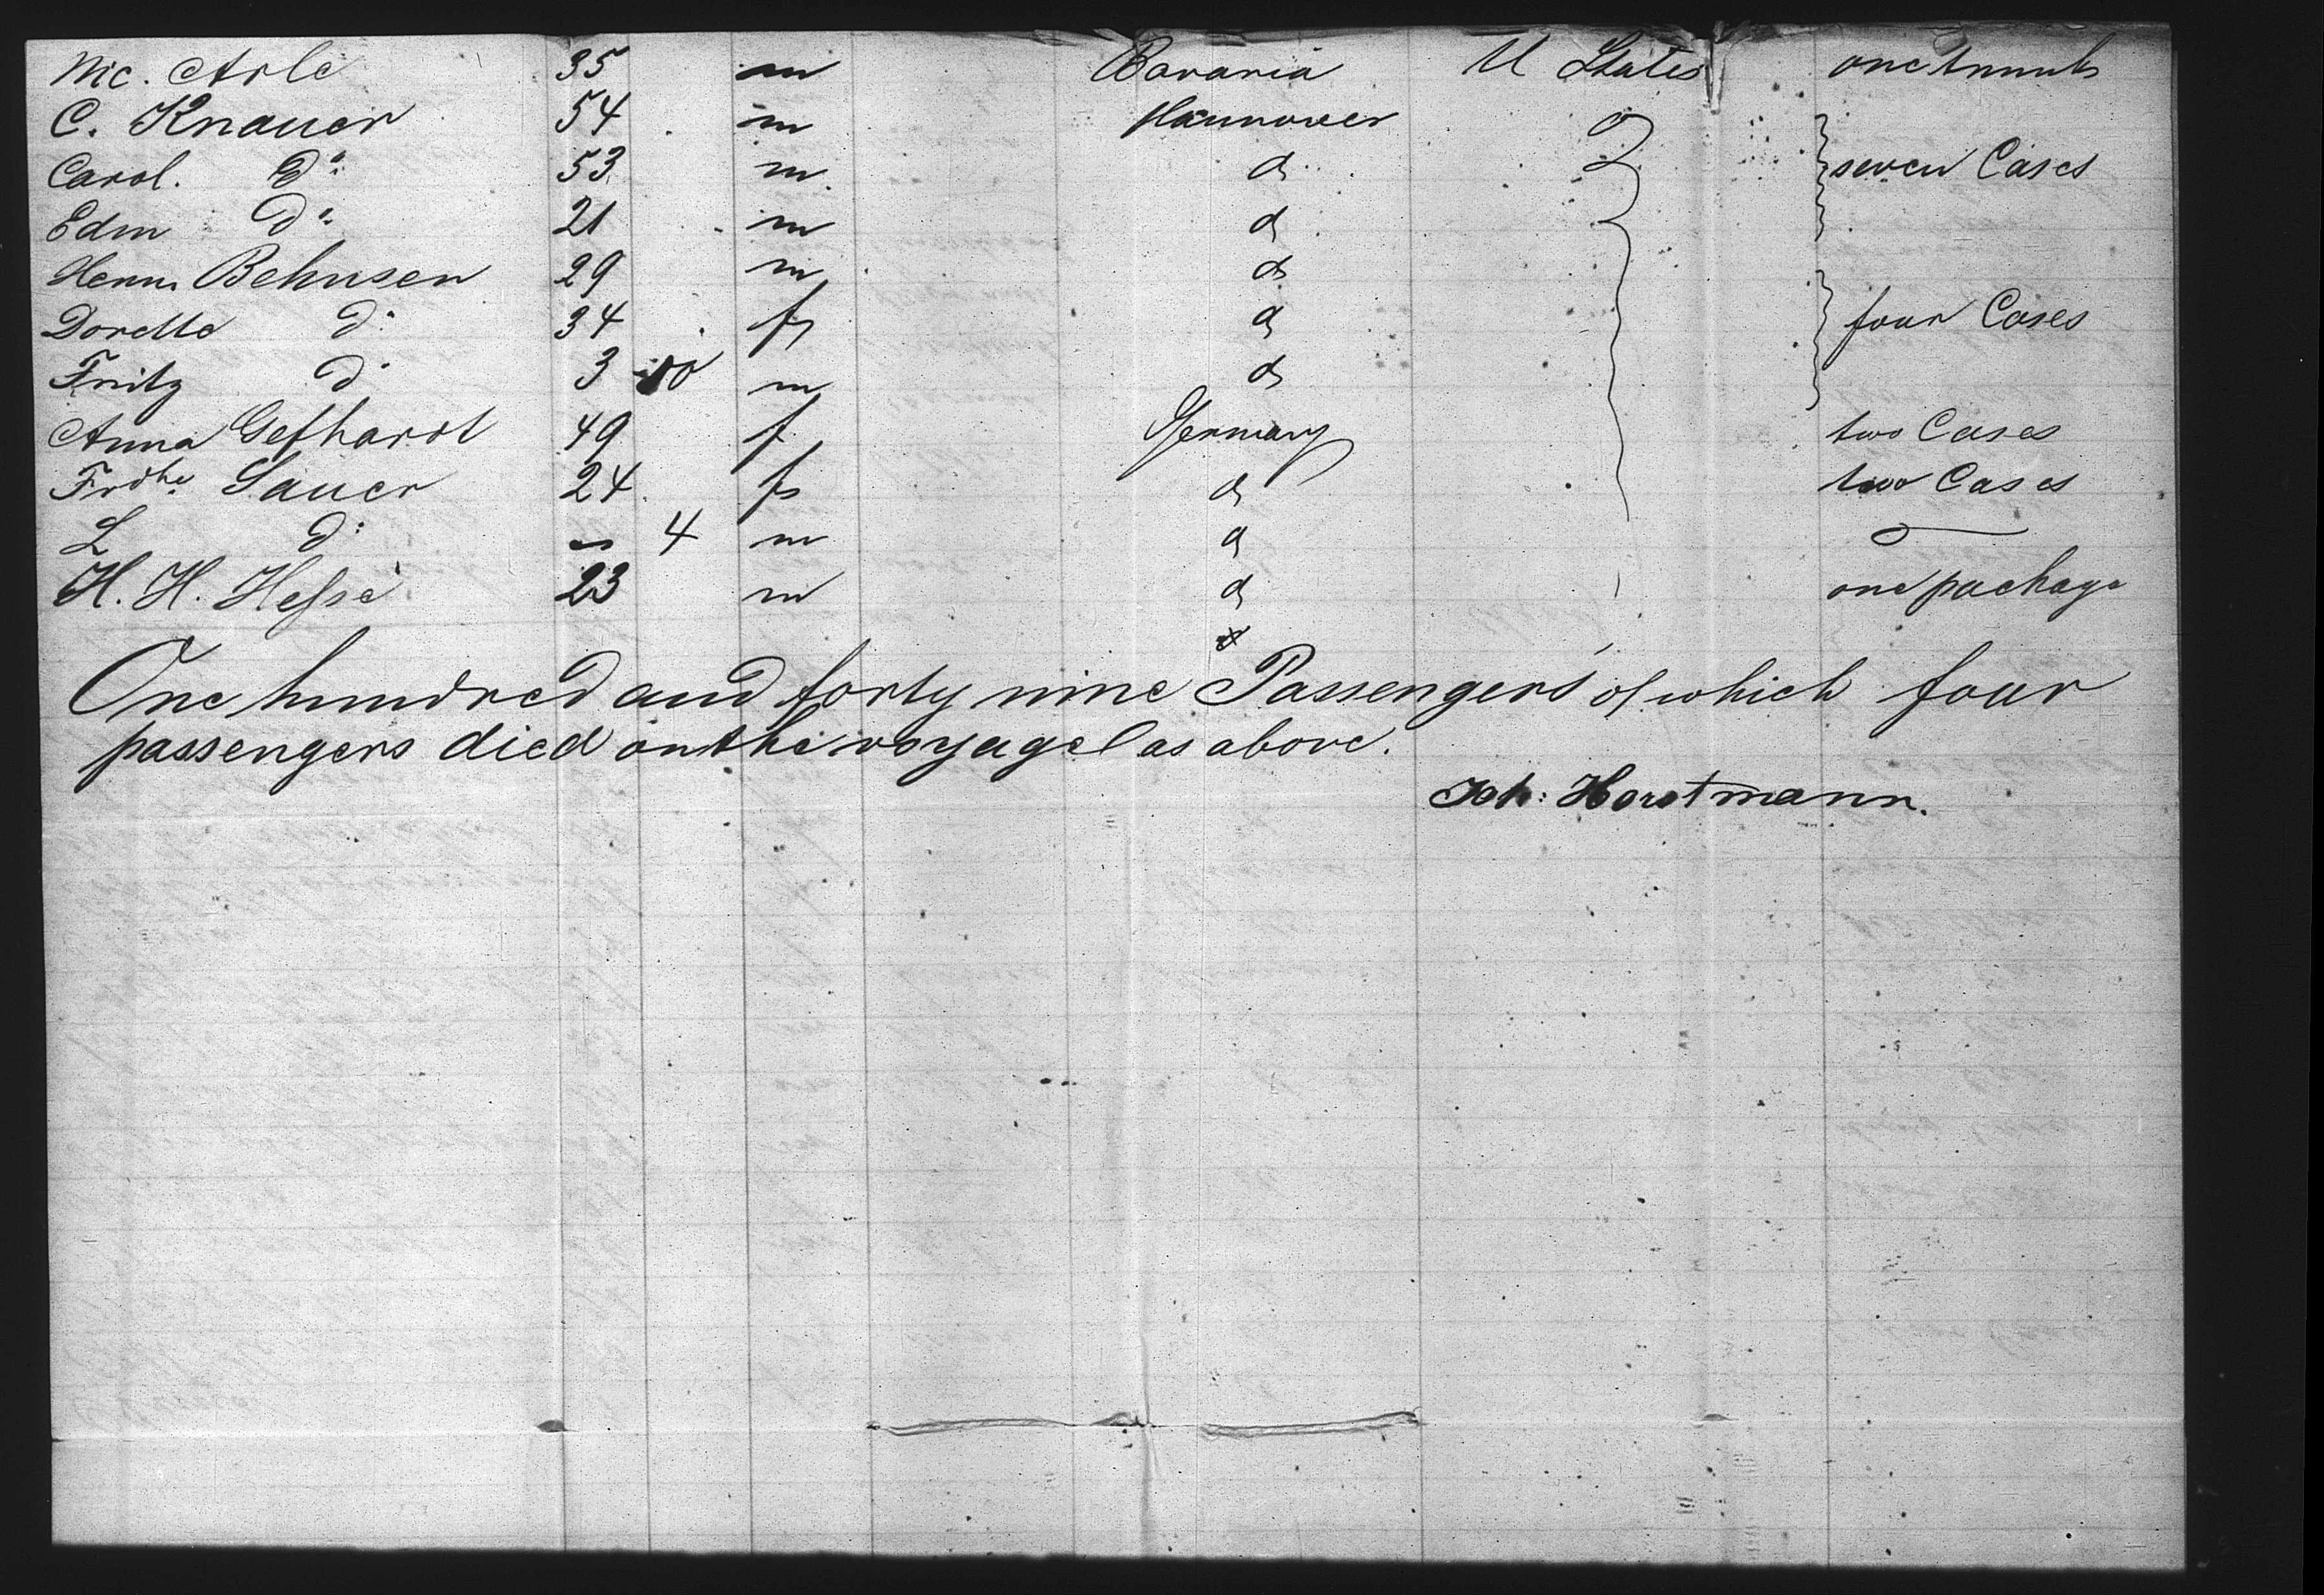 Nic. Arle 35 m Bavaria U States one trunk
C. Knauer 54 m Hannover
Carol. do 53 m d seven Cases
Edm do 21 m d
Herm. Behnsen 29 m d
Dorette do 34 f d four Cases
Fritz do 3 10 m d
Anna Gefhardt 49 f Germany two Cases
Frdke Sauer 24 f d two Cases
L do 4 m d
H. H. Hesse 23 m d one package
One hundred and forty nine Passengers of which four
passengers died on the voyage as above.
Joh: Horstmann.